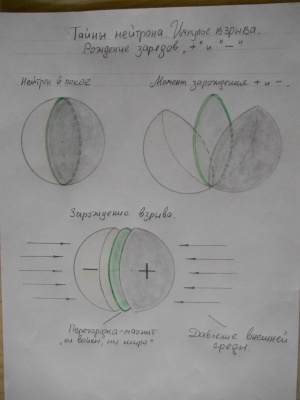 Тайны нейтрона. Импульс взрыва.
Рождение зарядов „+" и „−"
Нейтрон в покое
Момент зарождения + и −.
Зарождение взрыва.
−
+
Перегородка-магнит
„ни войны, ни мира"
Давление внешней
среды.